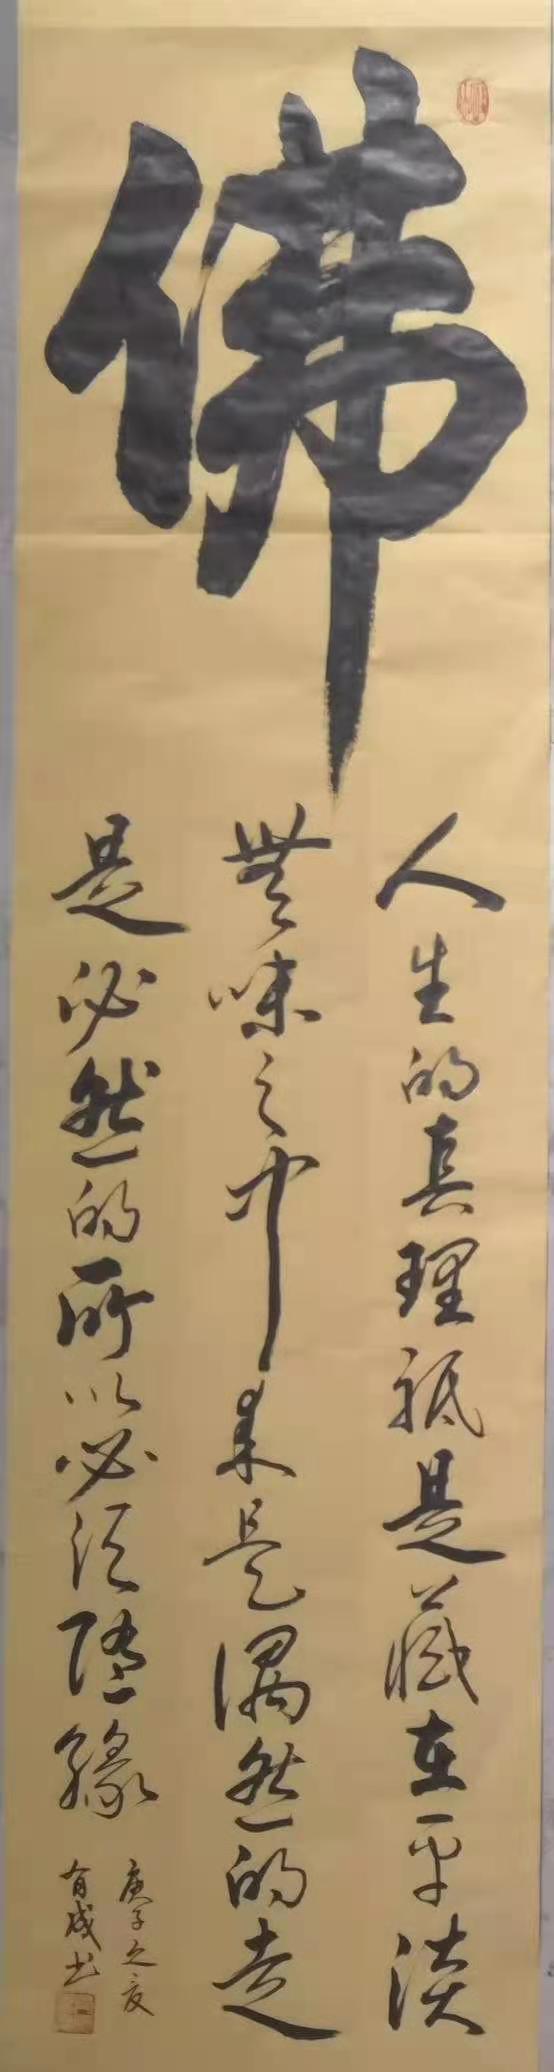 佛
人生的真理祇是藏在平淡
無味之中来是偶然的走
是必然的所以必须随缘
庚子之夏
有成书